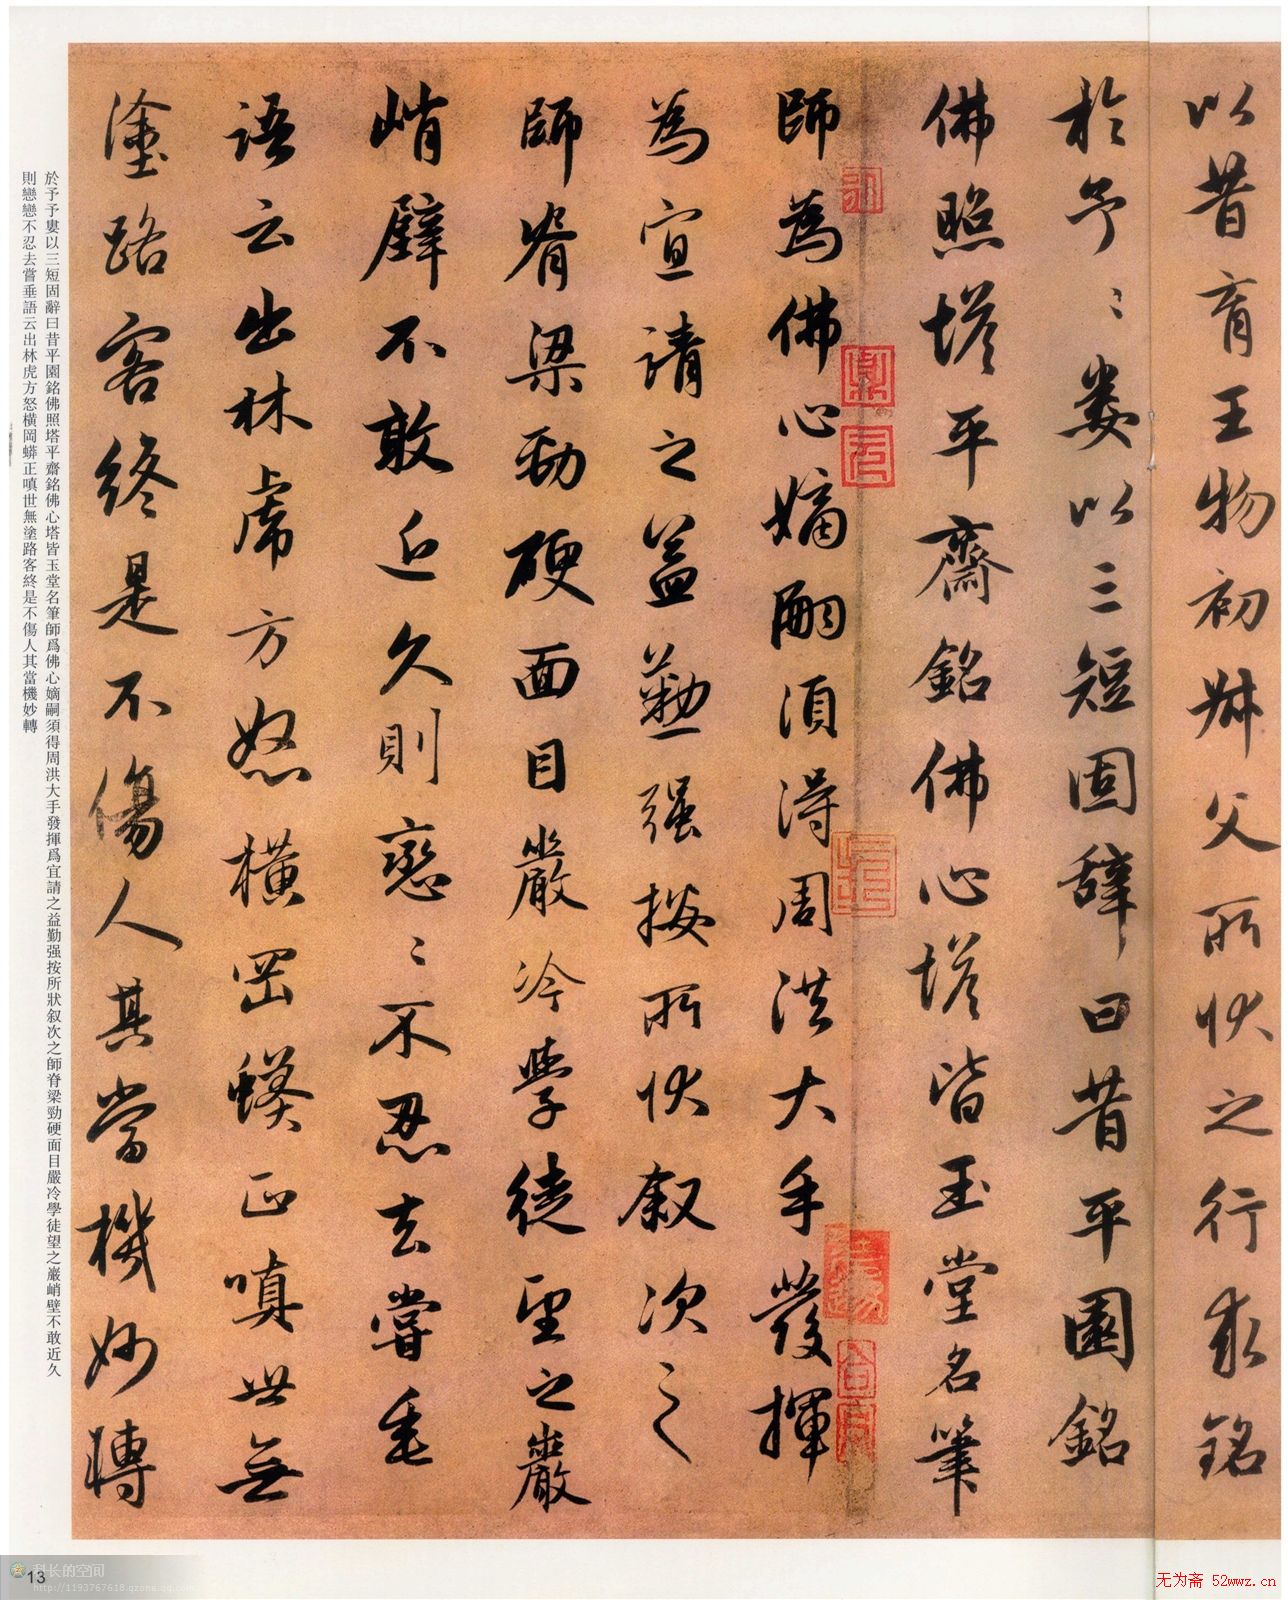 以昔育王物初叔父所状之行求銘
於予予婁以三短固辞曰昔平園銘
佛照塔平齋銘佛心塔皆玉堂名筆
師為佛心嫡嗣須得周洪大手發揮
為宜請之益勤强按所状叙次之
師脊梁勁硬面目嚴冷學徒望之巖
峭壁不敢近久則戀戀不忍去嘗垂
语云出林虎方怒橫岡蟒正嗔世無
塗路客終是不傷人其當機妙轉
於予予婁以三短固辭曰昔平園銘佛照塔平齋銘佛心塔皆玉堂名筆師爲佛心嫡嗣須得周洪大手發揮爲宜請之益勤强按所狀叙次之師脊梁勁硬面目嚴冷學徒望之巖峭壁不敢近久
則戀戀不忍去嘗垂語云出林虎方怒橫岡蟒正嗔世無塗路客終是不傷人其當機妙轉
13
科长的空间
http://1193767618.qzone.qq.com
无为斋 52wwz.cn